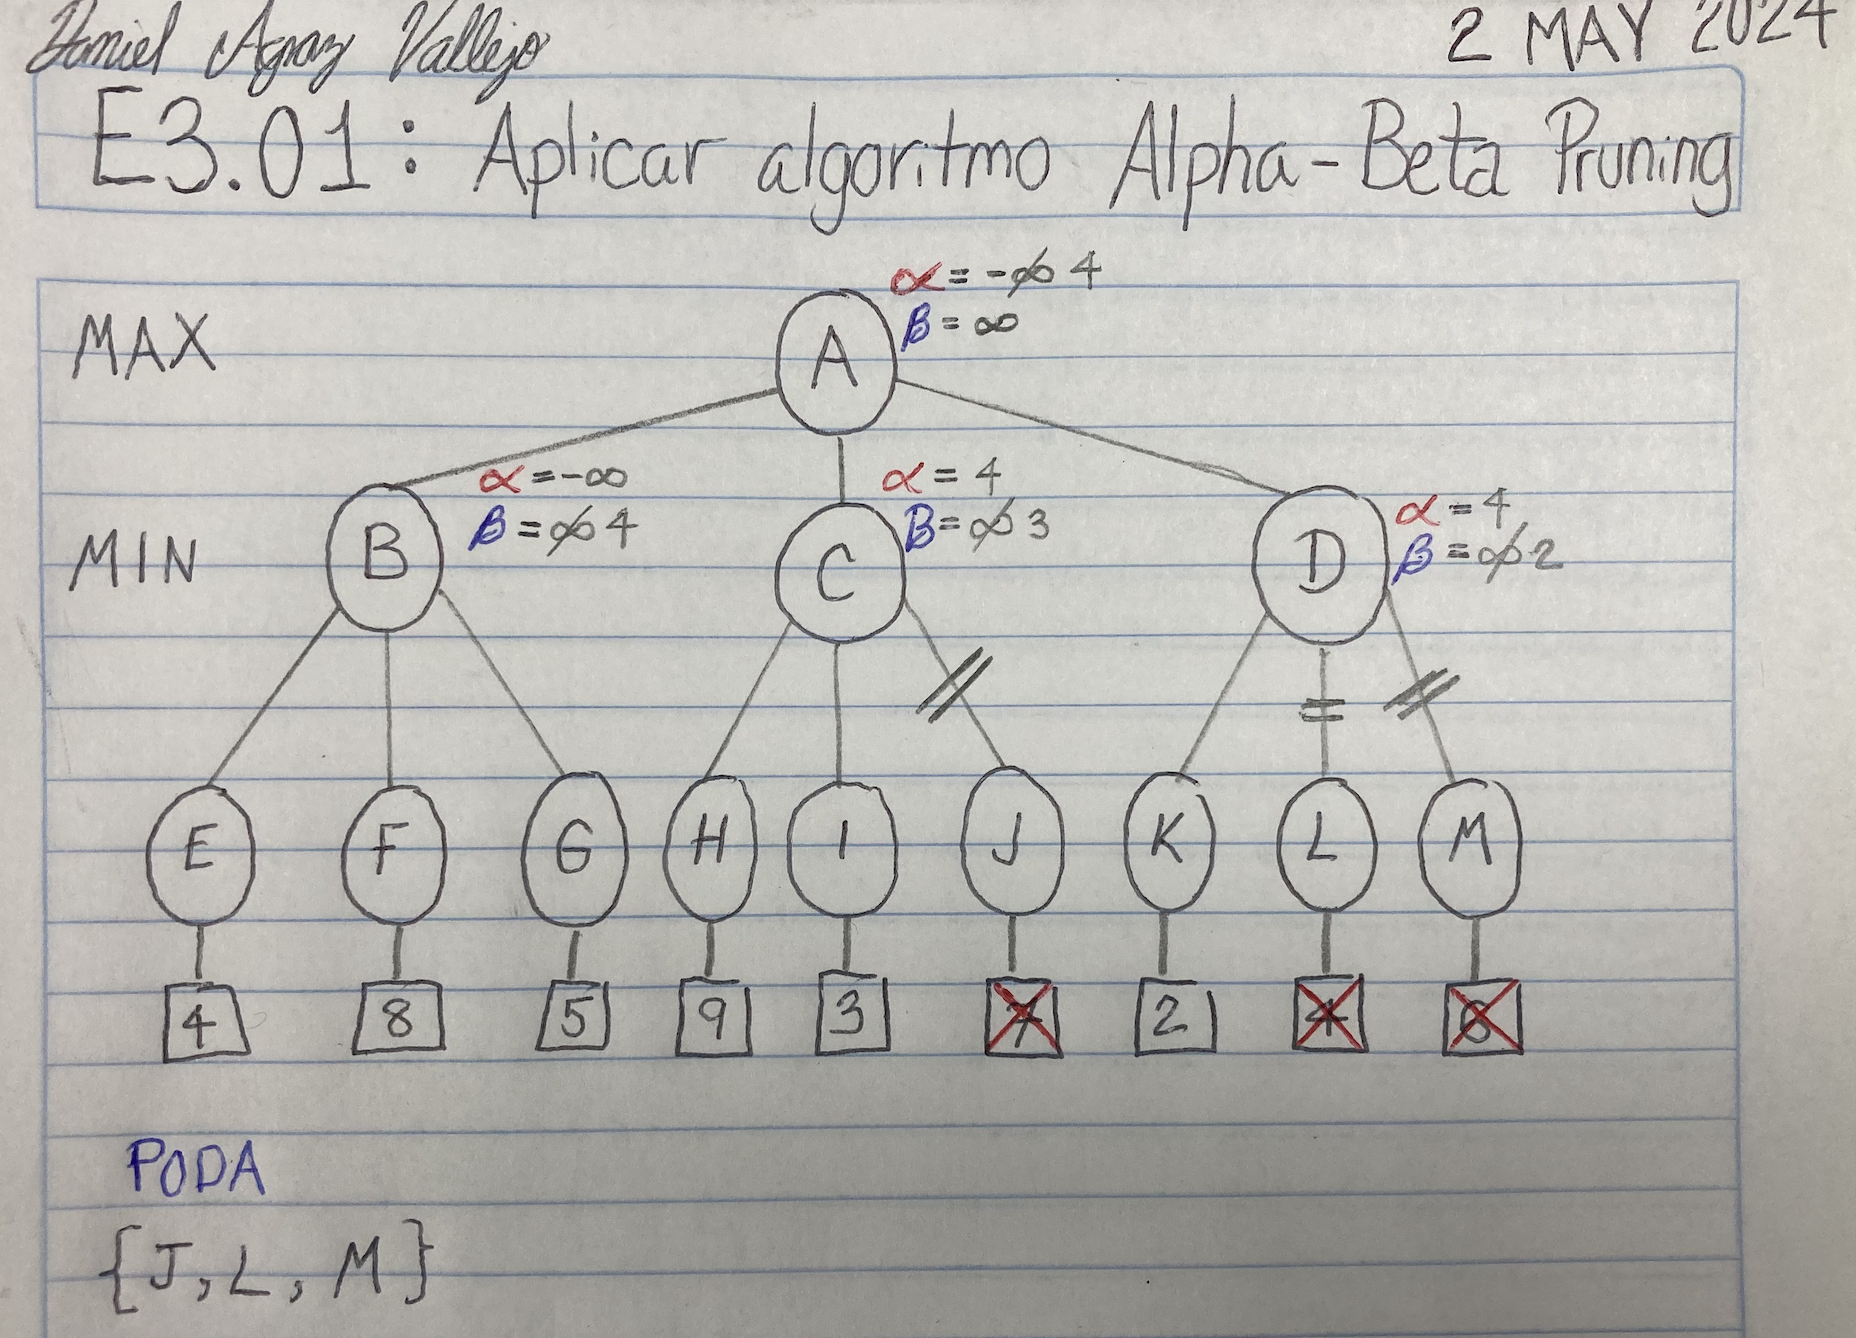 Daniel Agraz Vallejo 2 MAY 2024
E3.01: Aplicar algoritmo Alpha-Beta Pruning
α = -∞ 4
β = ∞
MAX A
α = -∞ α = 4 α = 4
β = ∞ 4 β = ∞ 3 β = ∞ 2
MIN B C D
E F G H I J K L M
4 8 5 9 3 7 2 4
PODA
{J, L, M}